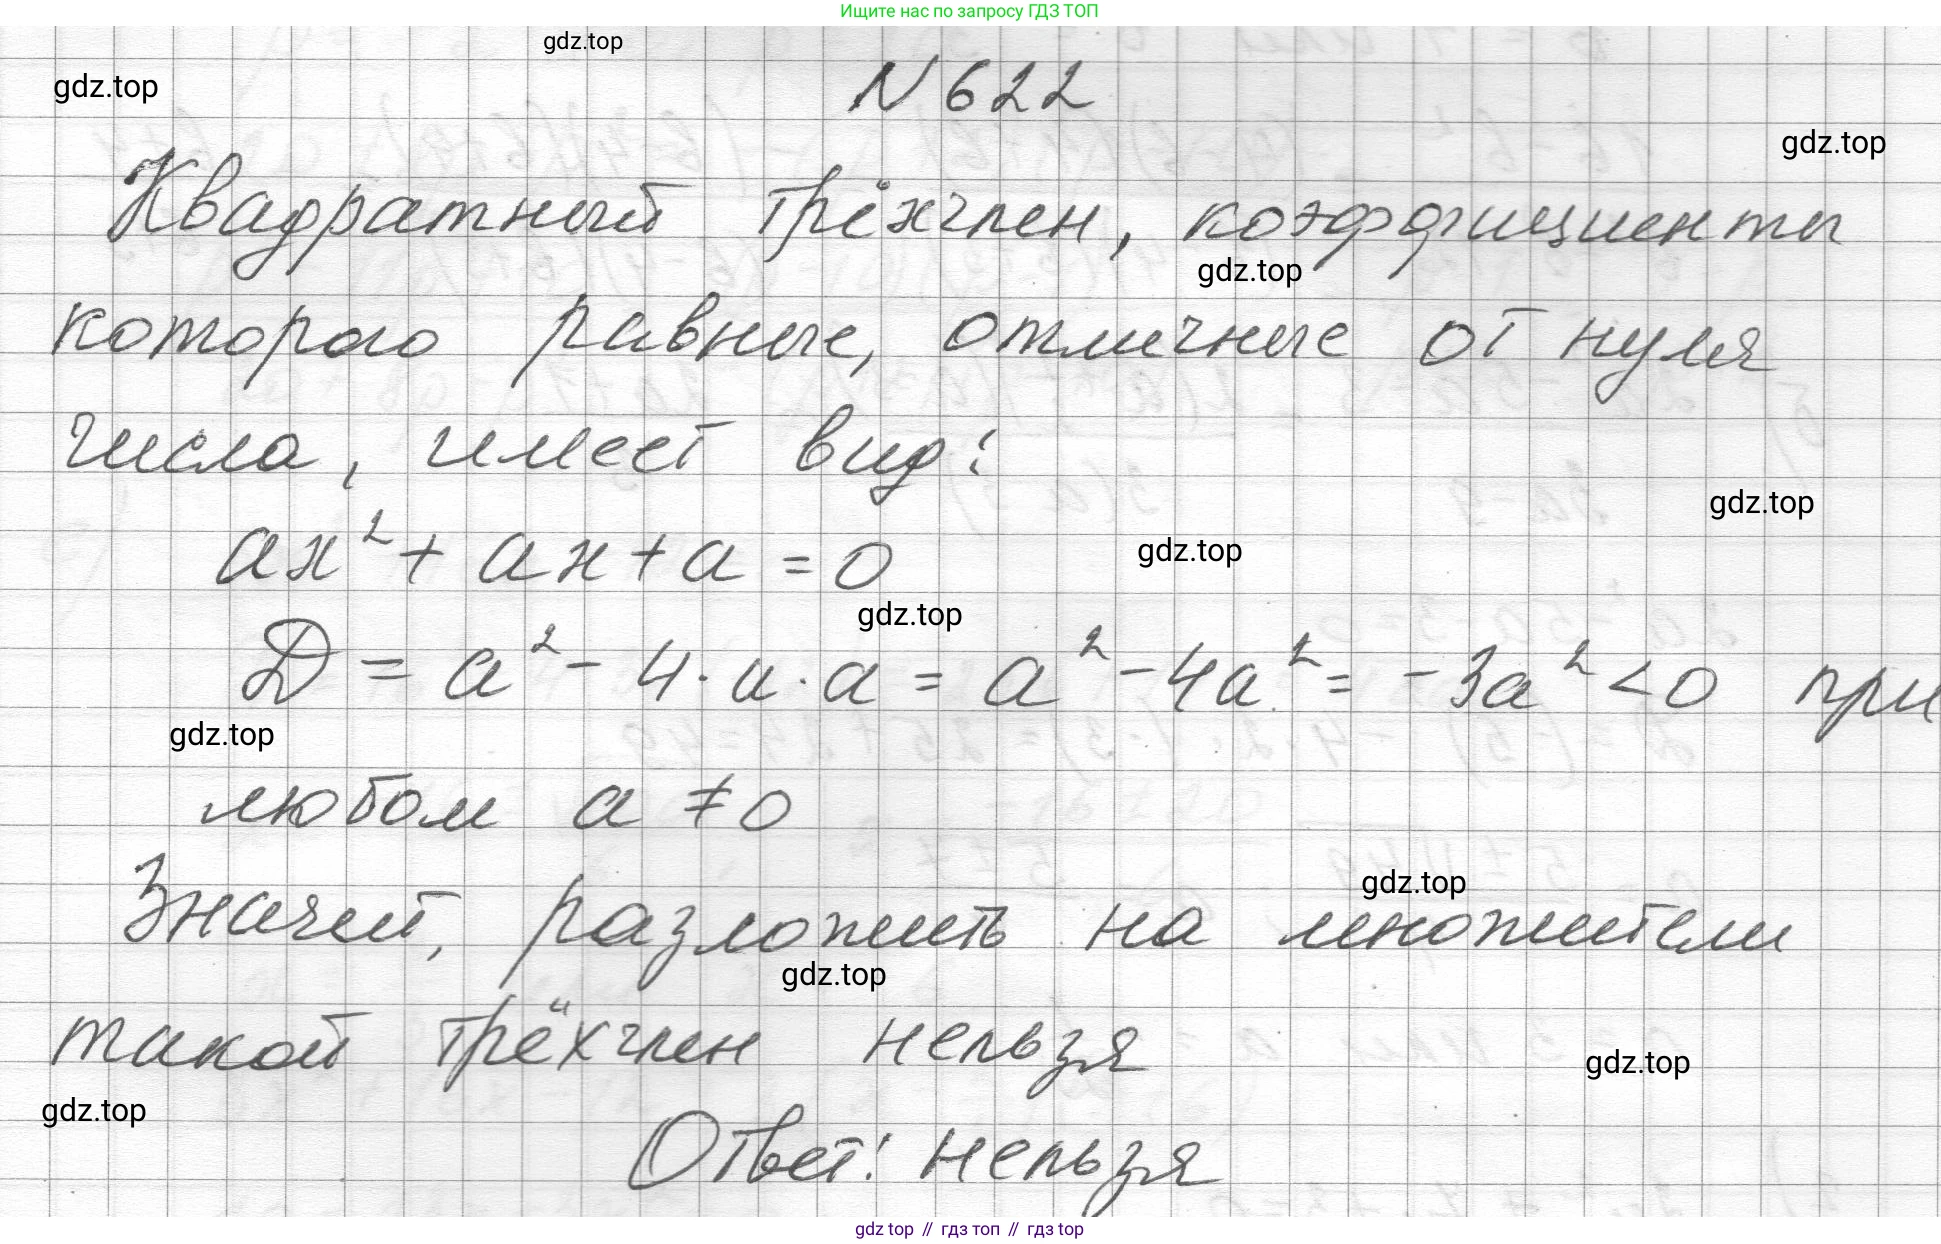 Ищите нас по запросу ГДЗ ТОП
gdz.top
gdz.top
N 622
gdz.top
Квадратный трёхчлен, коэффициенты
gdz.top
которого равные, отличные от нуля
числа, имеет вид:
gdz.top
ax² + ax + a = 0
gdz.top
gdz.top
D = a² - 4 · a · a = a² - 4a² = -3a² < 0 при
gdz.top
любом a ≠ 0
gdz.top
Значит, разложить на множители
gdz.top
такой трёхчлен нельзя
gdz.top
gdz.top
Ответ: нельзя
gdz.top // гдз топ // гдз top